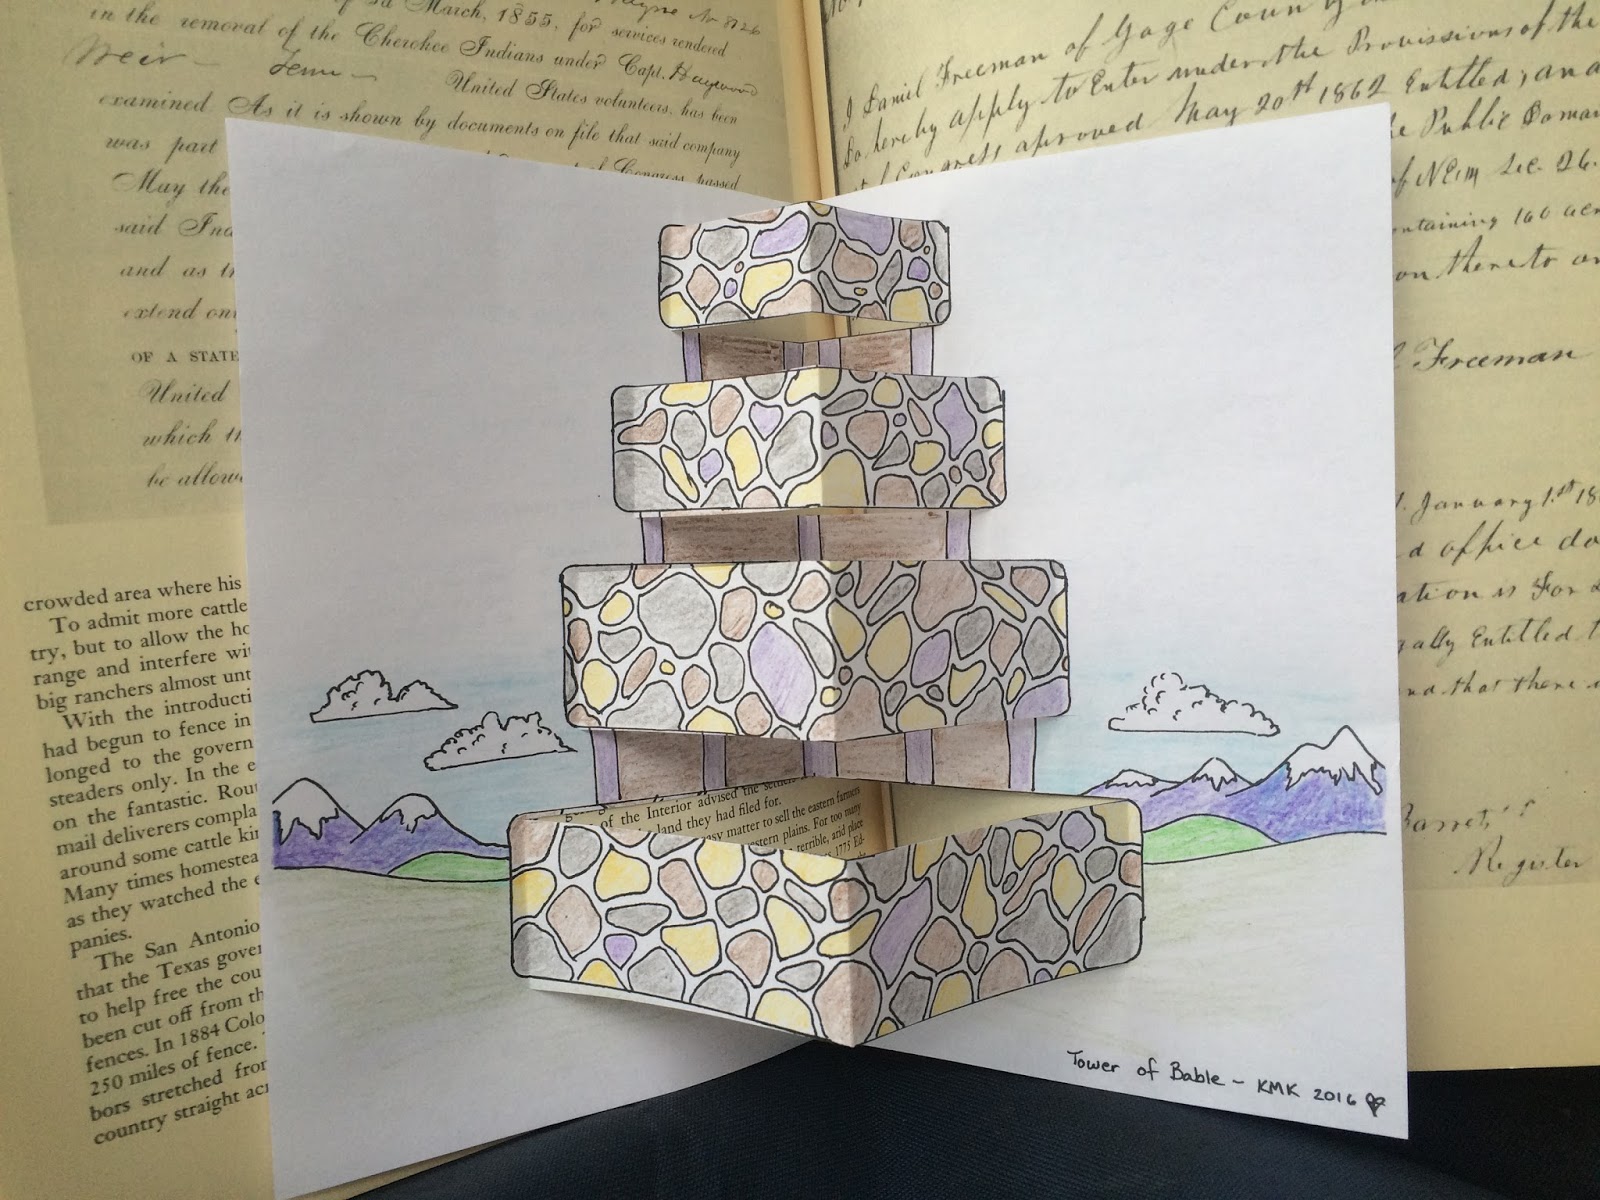 of 3d March, 1855, for services rendered
in the removal of the Cherokee Indians under Capt. Haywood
Weir - Tenn -
United States volunteers, has been
examined. As it is shown by documents on file that said company
was part
of Congress, passed
May the
said Ind
and as th
extend on
OF A STATE
United
which th
be allow
crowded area where his
To admit more cattle
try, but to allow the ho
range and interfere wi
big ranchers almost unt
With the introducti
had begun to fence in
longed to the govern
steaders only. In the e
on the fantastic. Rou
mail deliverers compla
around some cattle kin
Many times homestea
as they watched the e
panies.
The San Antonio
that the Texas gover
to help free the cou
been cut off from th
fences. In 1884 Colo
250 miles of fence.
bors stretched from
country straight acr
of the Interior advised the settlers
land they had filed for.
easy matter to sell the eastern farmers
western plains. For too many
terrible, and place
1775 Ed-
I Daniel Freeman of Gage County
Do hereby apply to Enter under the Provisions of the
of Congress aproved May 20th 1862 Entitled, an a
the Public Domai
of NE¼ Sec. 26.
ontaining 160 acr
on thereto an
Freeman
January 1st 18
d office do
ation is For
gally Entitled t
nd that there i
Barrett
Register
Tower of Bable - KMK 2016